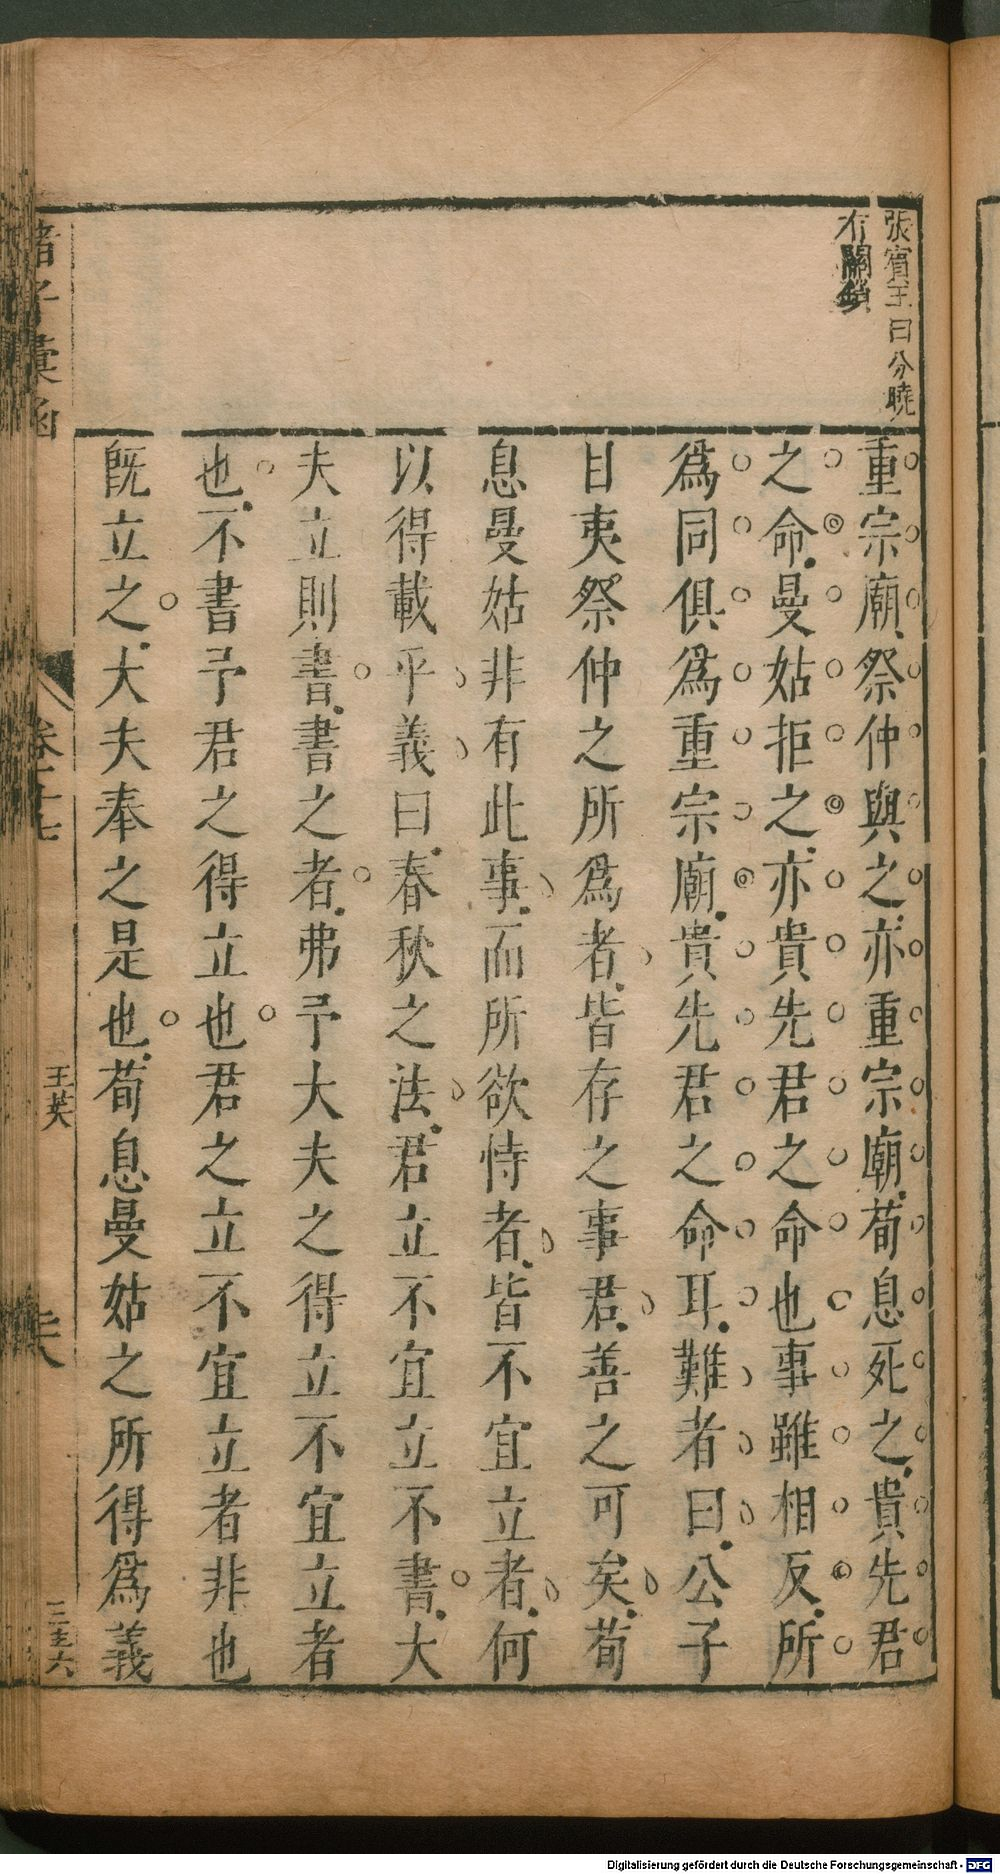 張賓王曰分曉
有關鎖
重宗廟祭仲與之亦重宗廟荀息死之貴先君
之命曼姑拒之亦貴先君之命也事雖相反所
爲同俱爲重宗廟貴先君之命耳難者曰公子
目夷祭仲之所爲者皆存之事君善之可矣荀
息曼姑非有此事而所欲恃者皆不宜立者何
以得載乎義曰春秋之法君立不宜立不書大
夫立則書書之者弗予大夫之得立不宜立者
也不書予君之得立也君之立不宜立者非也
旣立之大夫奉之是也荀息曼姑之所得爲義
諸子彙函
卷二十七
王英
Digitalisierung gefördert durch die Deutsche Forschungsgemeinschaft - DFG